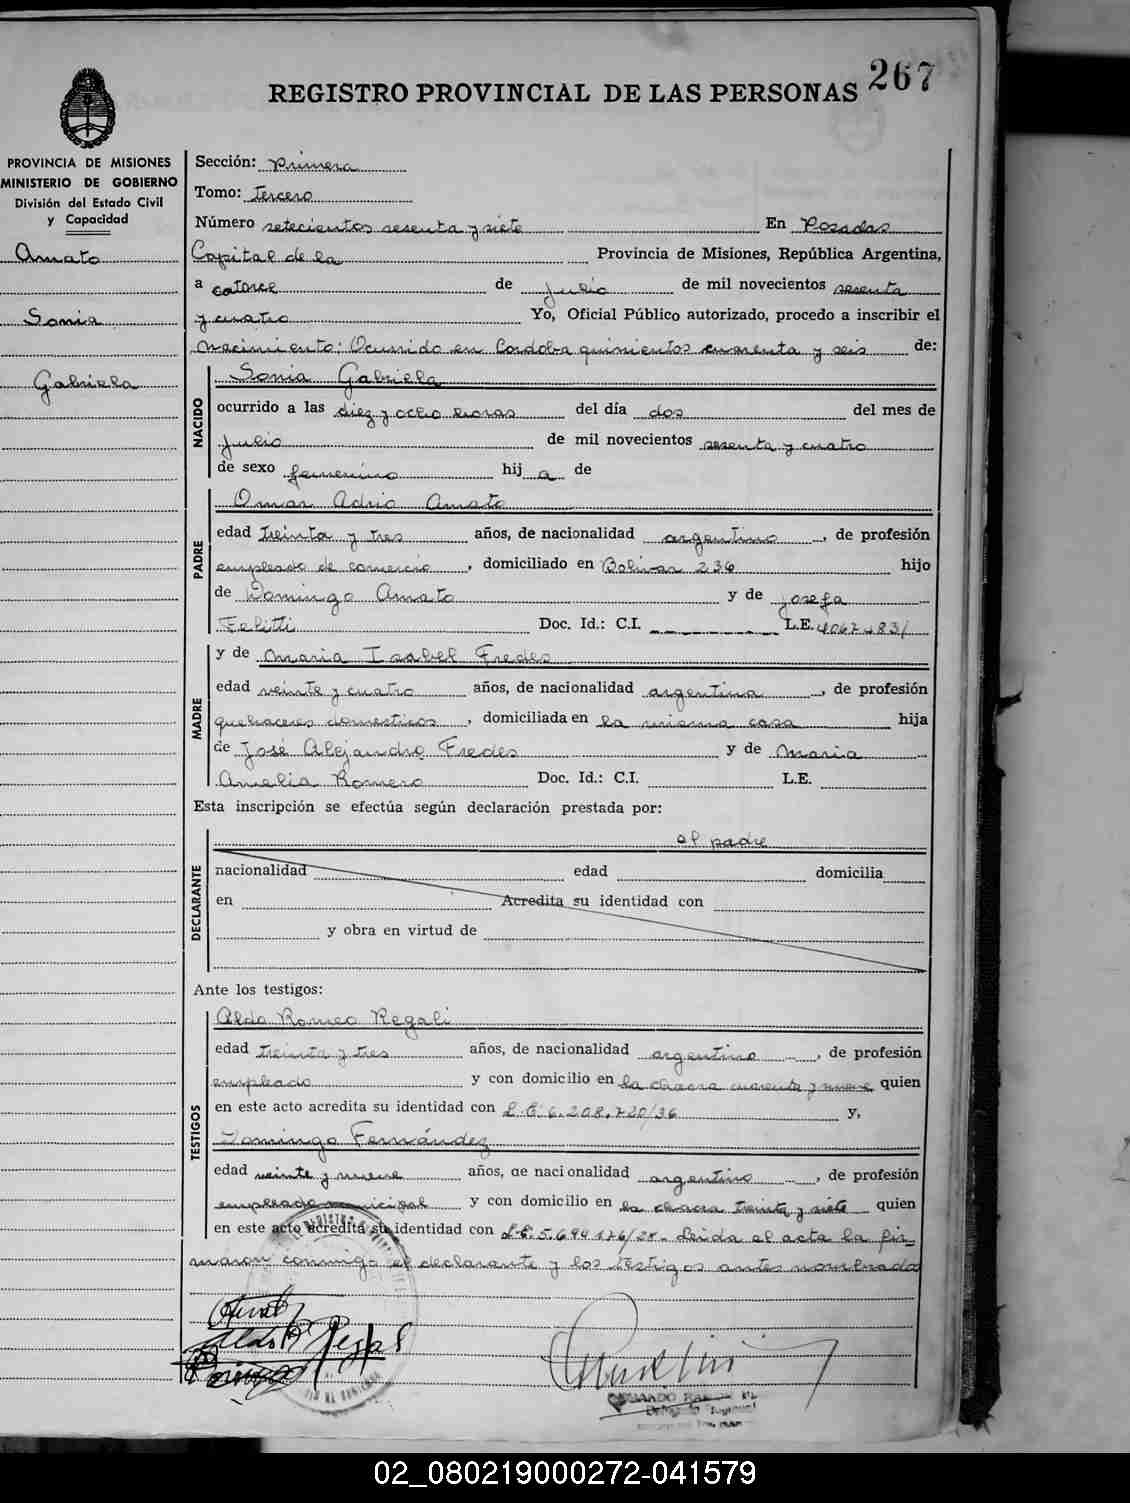 267
REGISTRO PROVINCIAL DE LAS PERSONAS
PROVINCIA DE MISIONES
MINISTERIO DE GOBIERNO
División del Estado Civil
y Capacidad
Amato
Sonia
Gabriela
Sección: Primera
Tomo: Tercero
Número setecientos sesenta y siete En Posadas
Capital de la Provincia de Misiones, República Argentina,
a catorce de Julio de mil novecientos sesenta
y cuatro Yo, Oficial Público autorizado, procedo a inscribir el
nacimiento: Ocurrido en Cordoba quinientos cuarenta y seis de:
NACIDO
Sonia Gabriela
ocurrido a las diez y ocho horas del día dos del mes de
Julio de mil novecientos sesenta y cuatro
de sexo femenino hij a de
PADRE
Omar Adrio Amato
edad treinta y tres años, de nacionalidad argentino, de profesión
empleado de comercio, domiciliado en Bolivar 236 hijo
de Domingo Amato y de Josefa
Felitti Doc. Id.: C.I. L.E.
MADRE
y de Maria Isabel Fredes
edad veinte y cuatro años, de nacionalidad argentina, de profesión
quehaceres domesticos, domiciliada en la misma casa hija
de José Alejandro Fredes y de Maria
Amelia Romero Doc. Id.: C.I. L.E.
Esta inscripción se efectúa según declaración prestada por:
DECLARANTE
el padre
nacionalidad edad domicilia
en Acredita su identidad con
y obra en virtud de
Ante los testigos:
TESTIGOS
Aldo Romeo Regali
edad treinta y tres años, de nacionalidad argentino, de profesión
empleado y con domicilio en la chacra cuarenta y nueve quien
en este acto acredita su identidad con L.E. 6.208.720/36 y,
Domingo Fernández
edad veinte y nueve años, de nacionalidad argentino, de profesión
empleado municipal y con domicilio en la chacra treinta y siete quien
en este acto acredita su identidad con L.E. Leida el acta la fir-
maron conmigo el declarante y los testigos antes nombrados
02_080219000272-041579